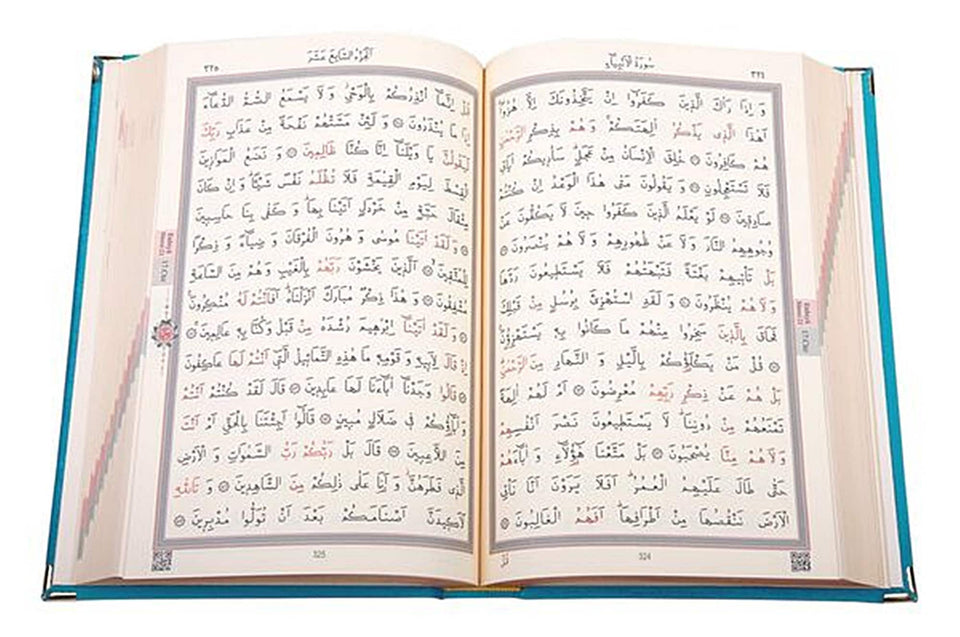 سُورَةُ الْاَنْبِيَاءِ ٣٢٤
وَ اِذَا رَاٰكَ الَّذِينَ كَفَرُٓوا اِنْ يَتَّخِذُونَكَ اِلَّا هُزُوًاۜ
اَهٰذَا الَّذِي يَذْكُرُ اٰلِهَتَكُمْۚ وَ هُمْ بِذِكْرِ الرَّحْمٰنِ
هُمْ كَافِرُونَ ۞ خُلِقَ الْاِنْسَانُ مِنْ عَجَلٍۜ سَاُرِيكُمْ اٰيَاتِي
فَلَا تَسْتَعْجِلُونِ ۞ وَ يَقُولُونَ مَتٰى هٰذَا الْوَعْدُ اِنْ كُنْتُمْ
صَادِقِينَ ۞ لَوْ يَعْلَمُ الَّذِينَ كَفَرُوا حِينَ لَا يَكُفُّونَ عَنْ
وُجُوهِهِمُ النَّارَ وَ لَا عَنْ ظُهُورِهِمْ وَ لَا هُمْ يُنْصَرُونَ ۞
بَلْ تَأْتِيهِمْ بَغْتَةً فَتَبْهَتُهُمْ فَلَا يَسْتَطِيعُونَ رَدَّهَا
وَ لَا هُمْ يُنْظَرُونَ ۞ وَ لَقَدِ اسْتُهْزِئَ بِرُسُلٍ مِنْ قَبْلِكَ
فَحَاقَ بِالَّذِينَ سَخِرُوا مِنْهُمْ مَا كَانُوا بِهِ يَسْتَهْزِؤُنَ
۞ قُلْ مَنْ يَكْلَؤُكُمْ بِالَّيْلِ وَ النَّهَارِ مِنَ الرَّحْمٰنِۜ
بَلْ هُمْ عَنْ ذِكْرِ رَبِّهِمْ مُعْرِضُونَ ۞ اَمْ لَهُمْ اٰلِهَةٌ
تَمْنَعُهُمْ مِنْ دُونِنَاۜ لَا يَسْتَطِيعُونَ نَصْرَ اَنْفُسِهِمْ
وَ لَا هُمْ مِنَّا يُصْحَبُونَ ۞ بَلْ مَتَّعْنَا هٰٓؤُلَٓاءِ وَ اٰبَٓاءَهُمْ
حَتّٰى طَالَ عَلَيْهِمُ الْعُمُرُۜ اَفَلَا يَرَوْنَ اَنَّا نَأْتِي
الْاَرْضَ نَنْقُصُهَا مِنْ اَطْرَافِهَاۜ اَفَهُمُ الْغَالِبُونَ ۞
قُلْ
324
اَلْجُزْءُ السَّابِعَ عَشَرَ ٣٢٥
قُلْ اِنَّمَٓا اُنْذِرُكُمْ بِالْوَحْيِۘ وَ لَا يَسْمَعُ الصُّمُّ الدُّعَٓاءَ
اِذَا مَا يُنْذَرُونَ ۞ وَ لَئِنْ مَسَّتْهُمْ نَفْحَةٌ مِنْ عَذَابِ رَبِّكَ
لَيَقُولُنَّ يَا وَيْلَنَٓا اِنَّا كُنَّا ظَالِمِينَ ۞ وَ نَضَعُ الْمَوَازِينَ
الْقِسْطَ لِيَوْمِ الْقِيٰمَةِ فَلَا تُظْلَمُ نَفْسٌ شَيْـًٔاۜ وَ اِنْ كَانَ
مِثْقَالَ حَبَّةٍ مِنْ خَرْدَلٍ اَتَيْنَا بِهَاۜ وَ كَفٰى بِنَا حَاسِبِينَ
۞ وَ لَقَدْ اٰتَيْنَا مُوسٰى وَ هٰرُونَ الْفُرْقَانَ وَ ضِيَٓاءً وَ ذِكْرًا
لِلْمُتَّقِينَۙ ۞ اَلَّذِينَ يَخْشَوْنَ رَبَّهُمْ بِالْغَيْبِ وَ هُمْ مِنَ السَّاعَةِ
مُشْفِقُونَ ۞ وَ هٰذَا ذِكْرٌ مُبَارَكٌ اَنْزَلْنَاهُۜ اَفَاَنْتُمْ لَهُ مُنْكِرُونَ
۞ وَ لَقَدْ اٰتَيْنَٓا اِبْرٰهِيمَ رُشْدَهُ مِنْ قَبْلُ وَ كُنَّا بِهِ عَالِمِينَ ۞
اِذْ قَالَ لِاَبِيهِ وَ قَوْمِهِ مَا هٰذِهِ التَّمَاثِيلُ الَّتِٓي اَنْتُمْ لَهَا عَاكِفُونَ
۞ قَالُوا وَجَدْنَٓا اٰبَٓاءَنَا لَهَا عَابِدِينَ ۞ قَالَ لَقَدْ كُنْتُمْ اَنْتُمْ
وَ اٰبَٓاؤُ۬كُمْ فِي ضَلَالٍ مُبِينٍ ۞ قَالُٓوا اَجِئْتَنَا بِالْحَقِّ اَمْ اَنْتَ
مِنَ اللَّاعِبِينَ ۞ قَالَ بَلْ رَبُّكُمْ رَبُّ السَّمٰوَاتِ وَ الْاَرْضِ
الَّذِي فَطَرَهُنَّۘ وَ اَنَا عَلٰى ذٰلِكُمْ مِنَ الشَّاهِدِينَ ۞ وَ تَاللّٰهِ
لَاَكِيدَنَّ اَصْنَامَكُمْ بَعْدَ اَنْ تُوَلُّوا مُدْبِرِينَ ۞
325